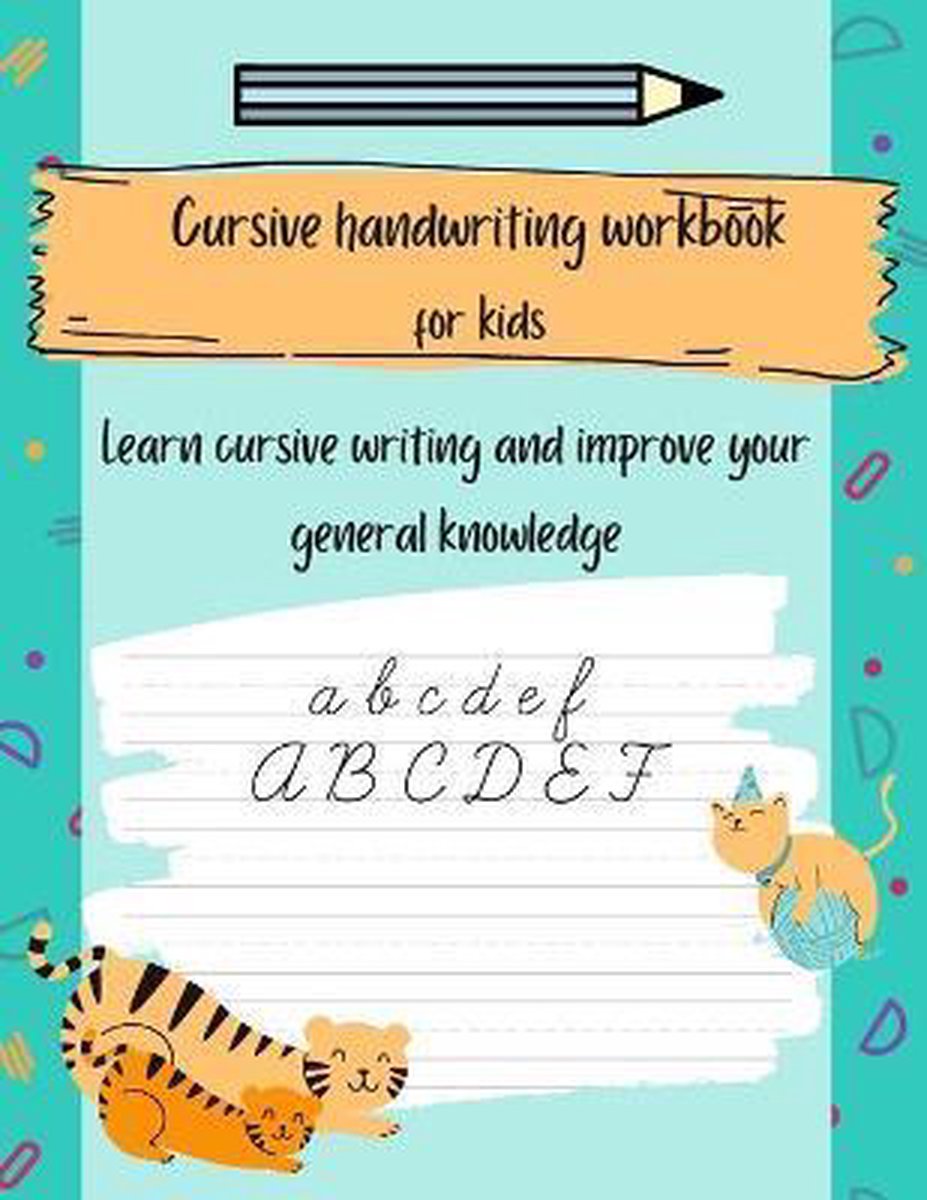 Cursive handwriting workbook
for kids
Learn cursive writing and improve your
general knowledge
a b c d e f
A B C D E F